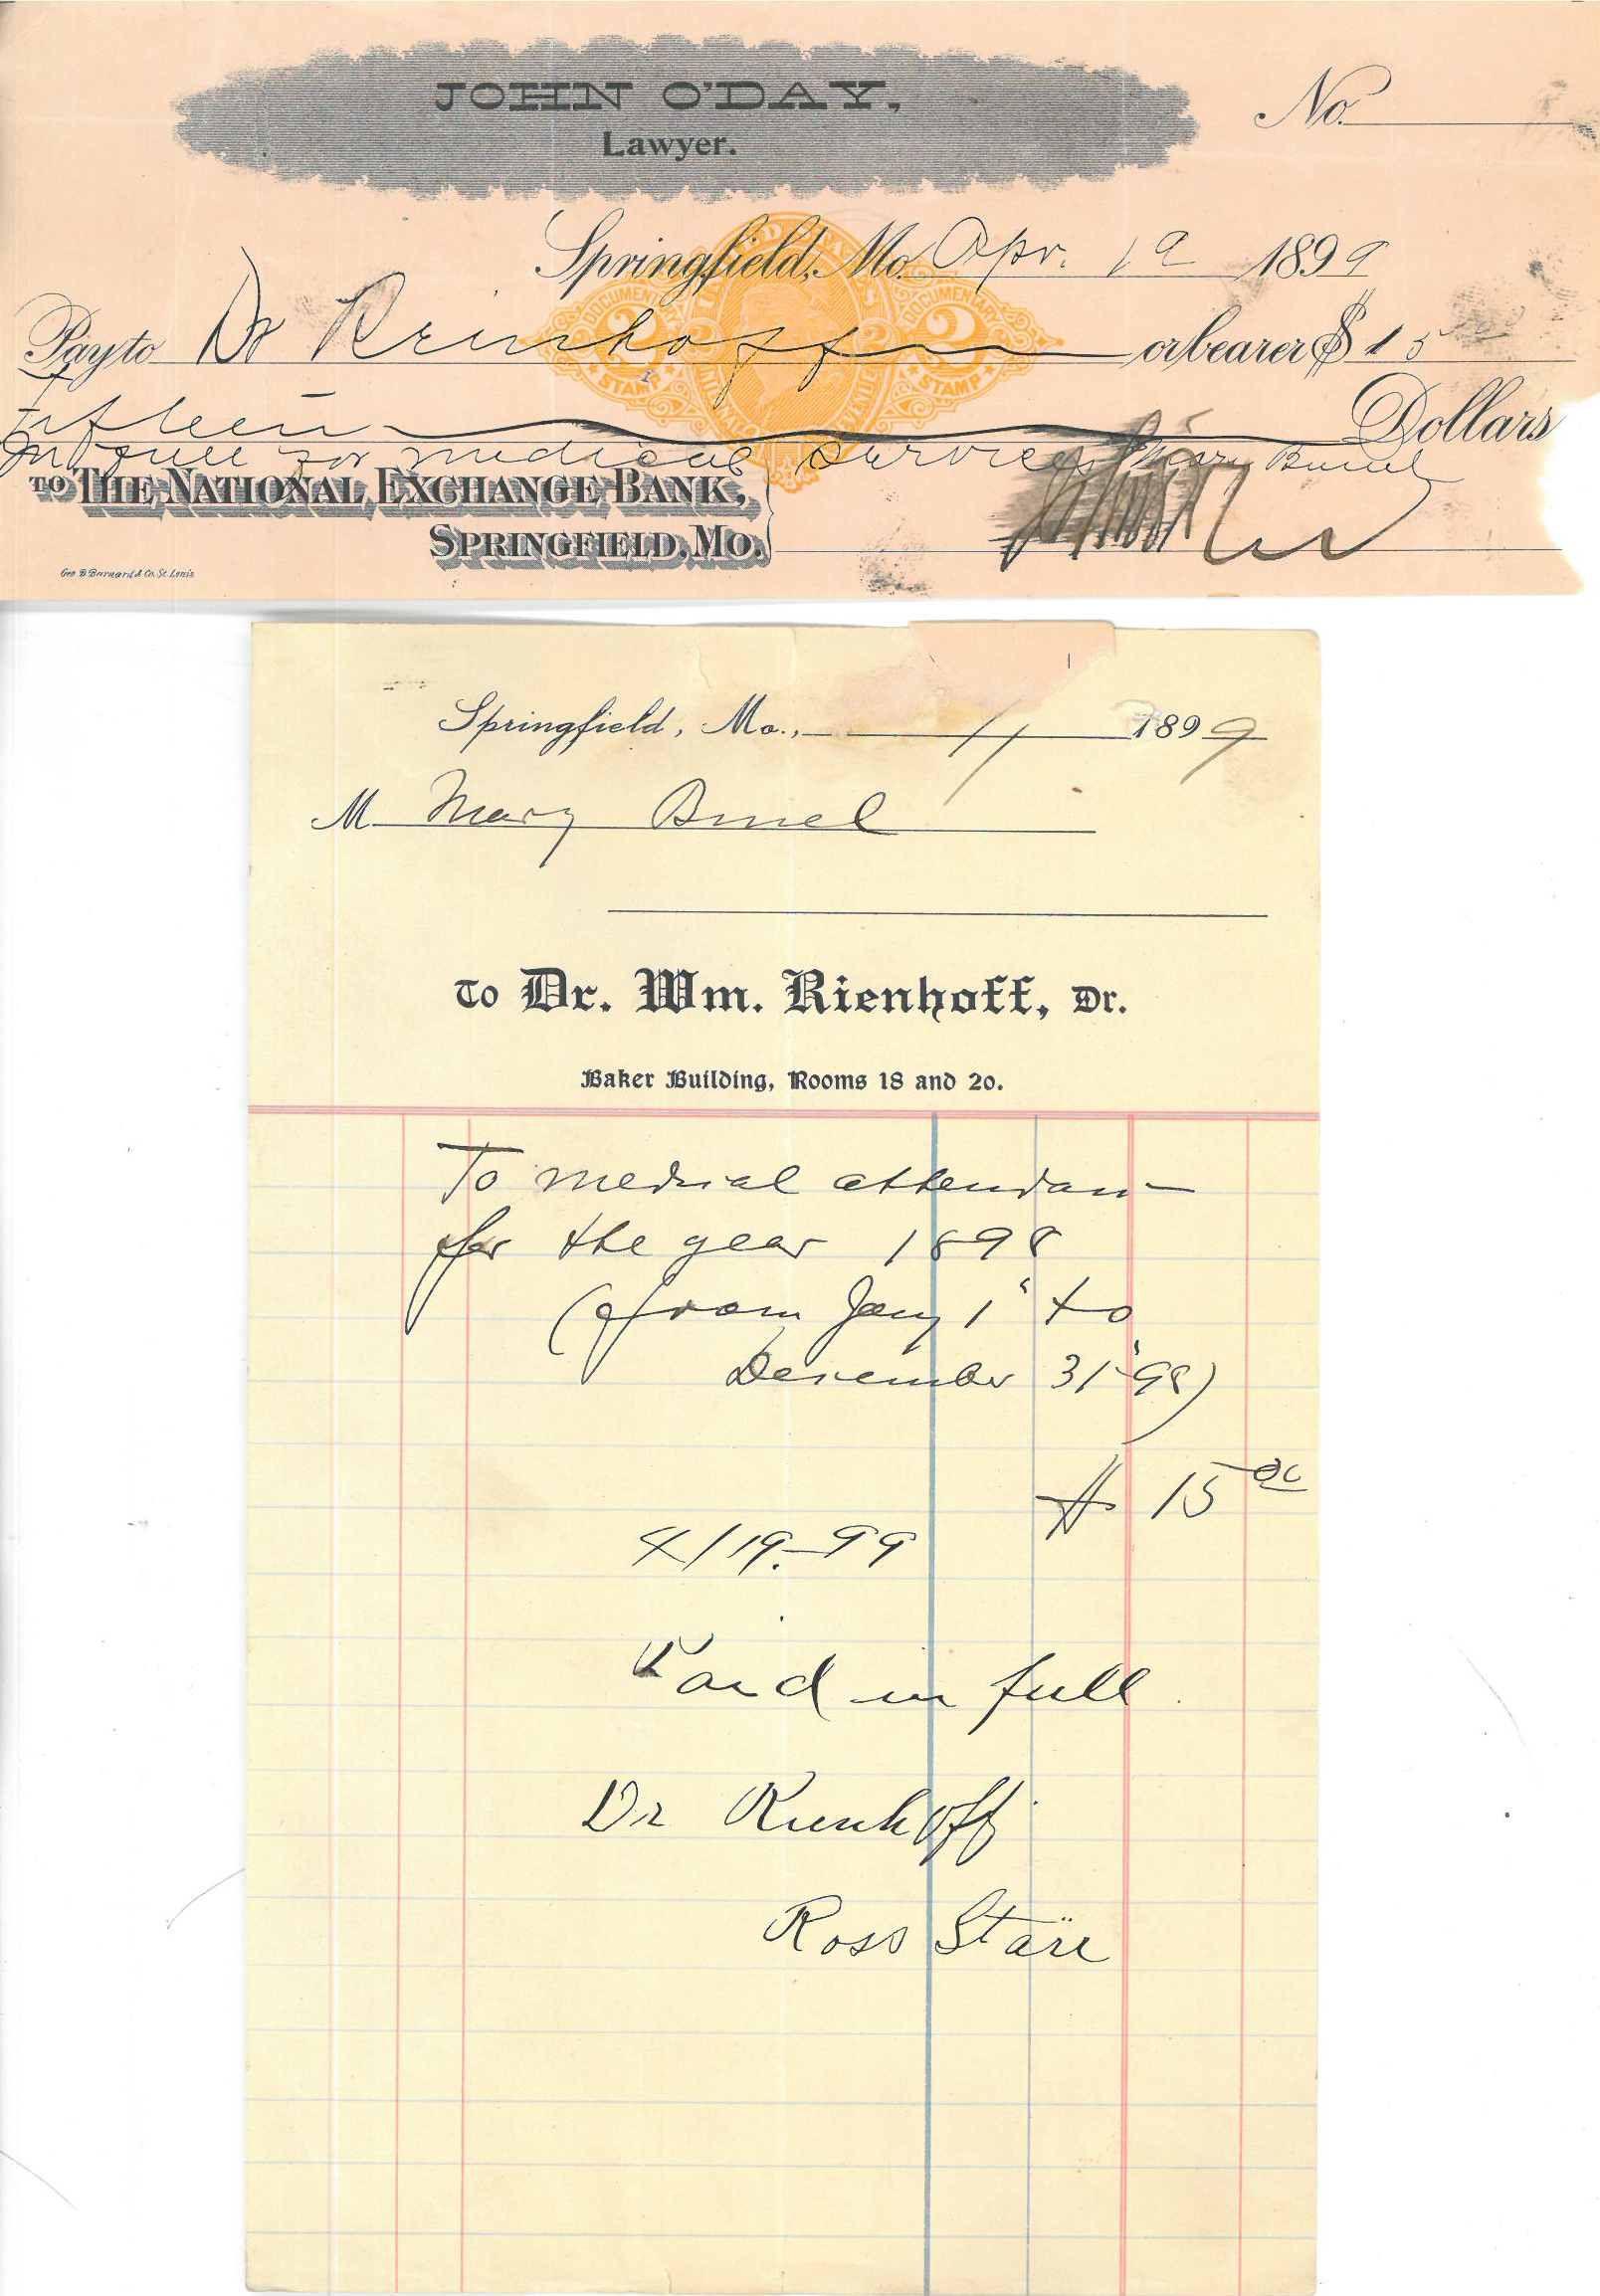 JOHN O'DAY,
Lawyer.
No.
Springfield, Mo. Apr. 19 1899
Pay to Dr Reinhoff or bearer $ 15
UNITED STATES
DOCUMENTARY DOCUMENTARY
2 2
STAMP STAMP
INTERNAL REVENUE
Fifteen Dollars
In full for medical services Mary Buel
TO THE NATIONAL EXCHANGE BANK,
SPRINGFIELD, MO.
Geo D Barnard & Co. St. Louis
Springfield, Mo., 1/1 1899
M Mary Buel
To Dr. Wm. Rienhoff, Dr.
Baker Building, Rooms 18 and 20.
To medical attendan
for the year 1898
(from Jany 1" to
December 31"98)
$ 15 00
4/19-99
Paid in full
Dr Rienhoff
Ross Starr